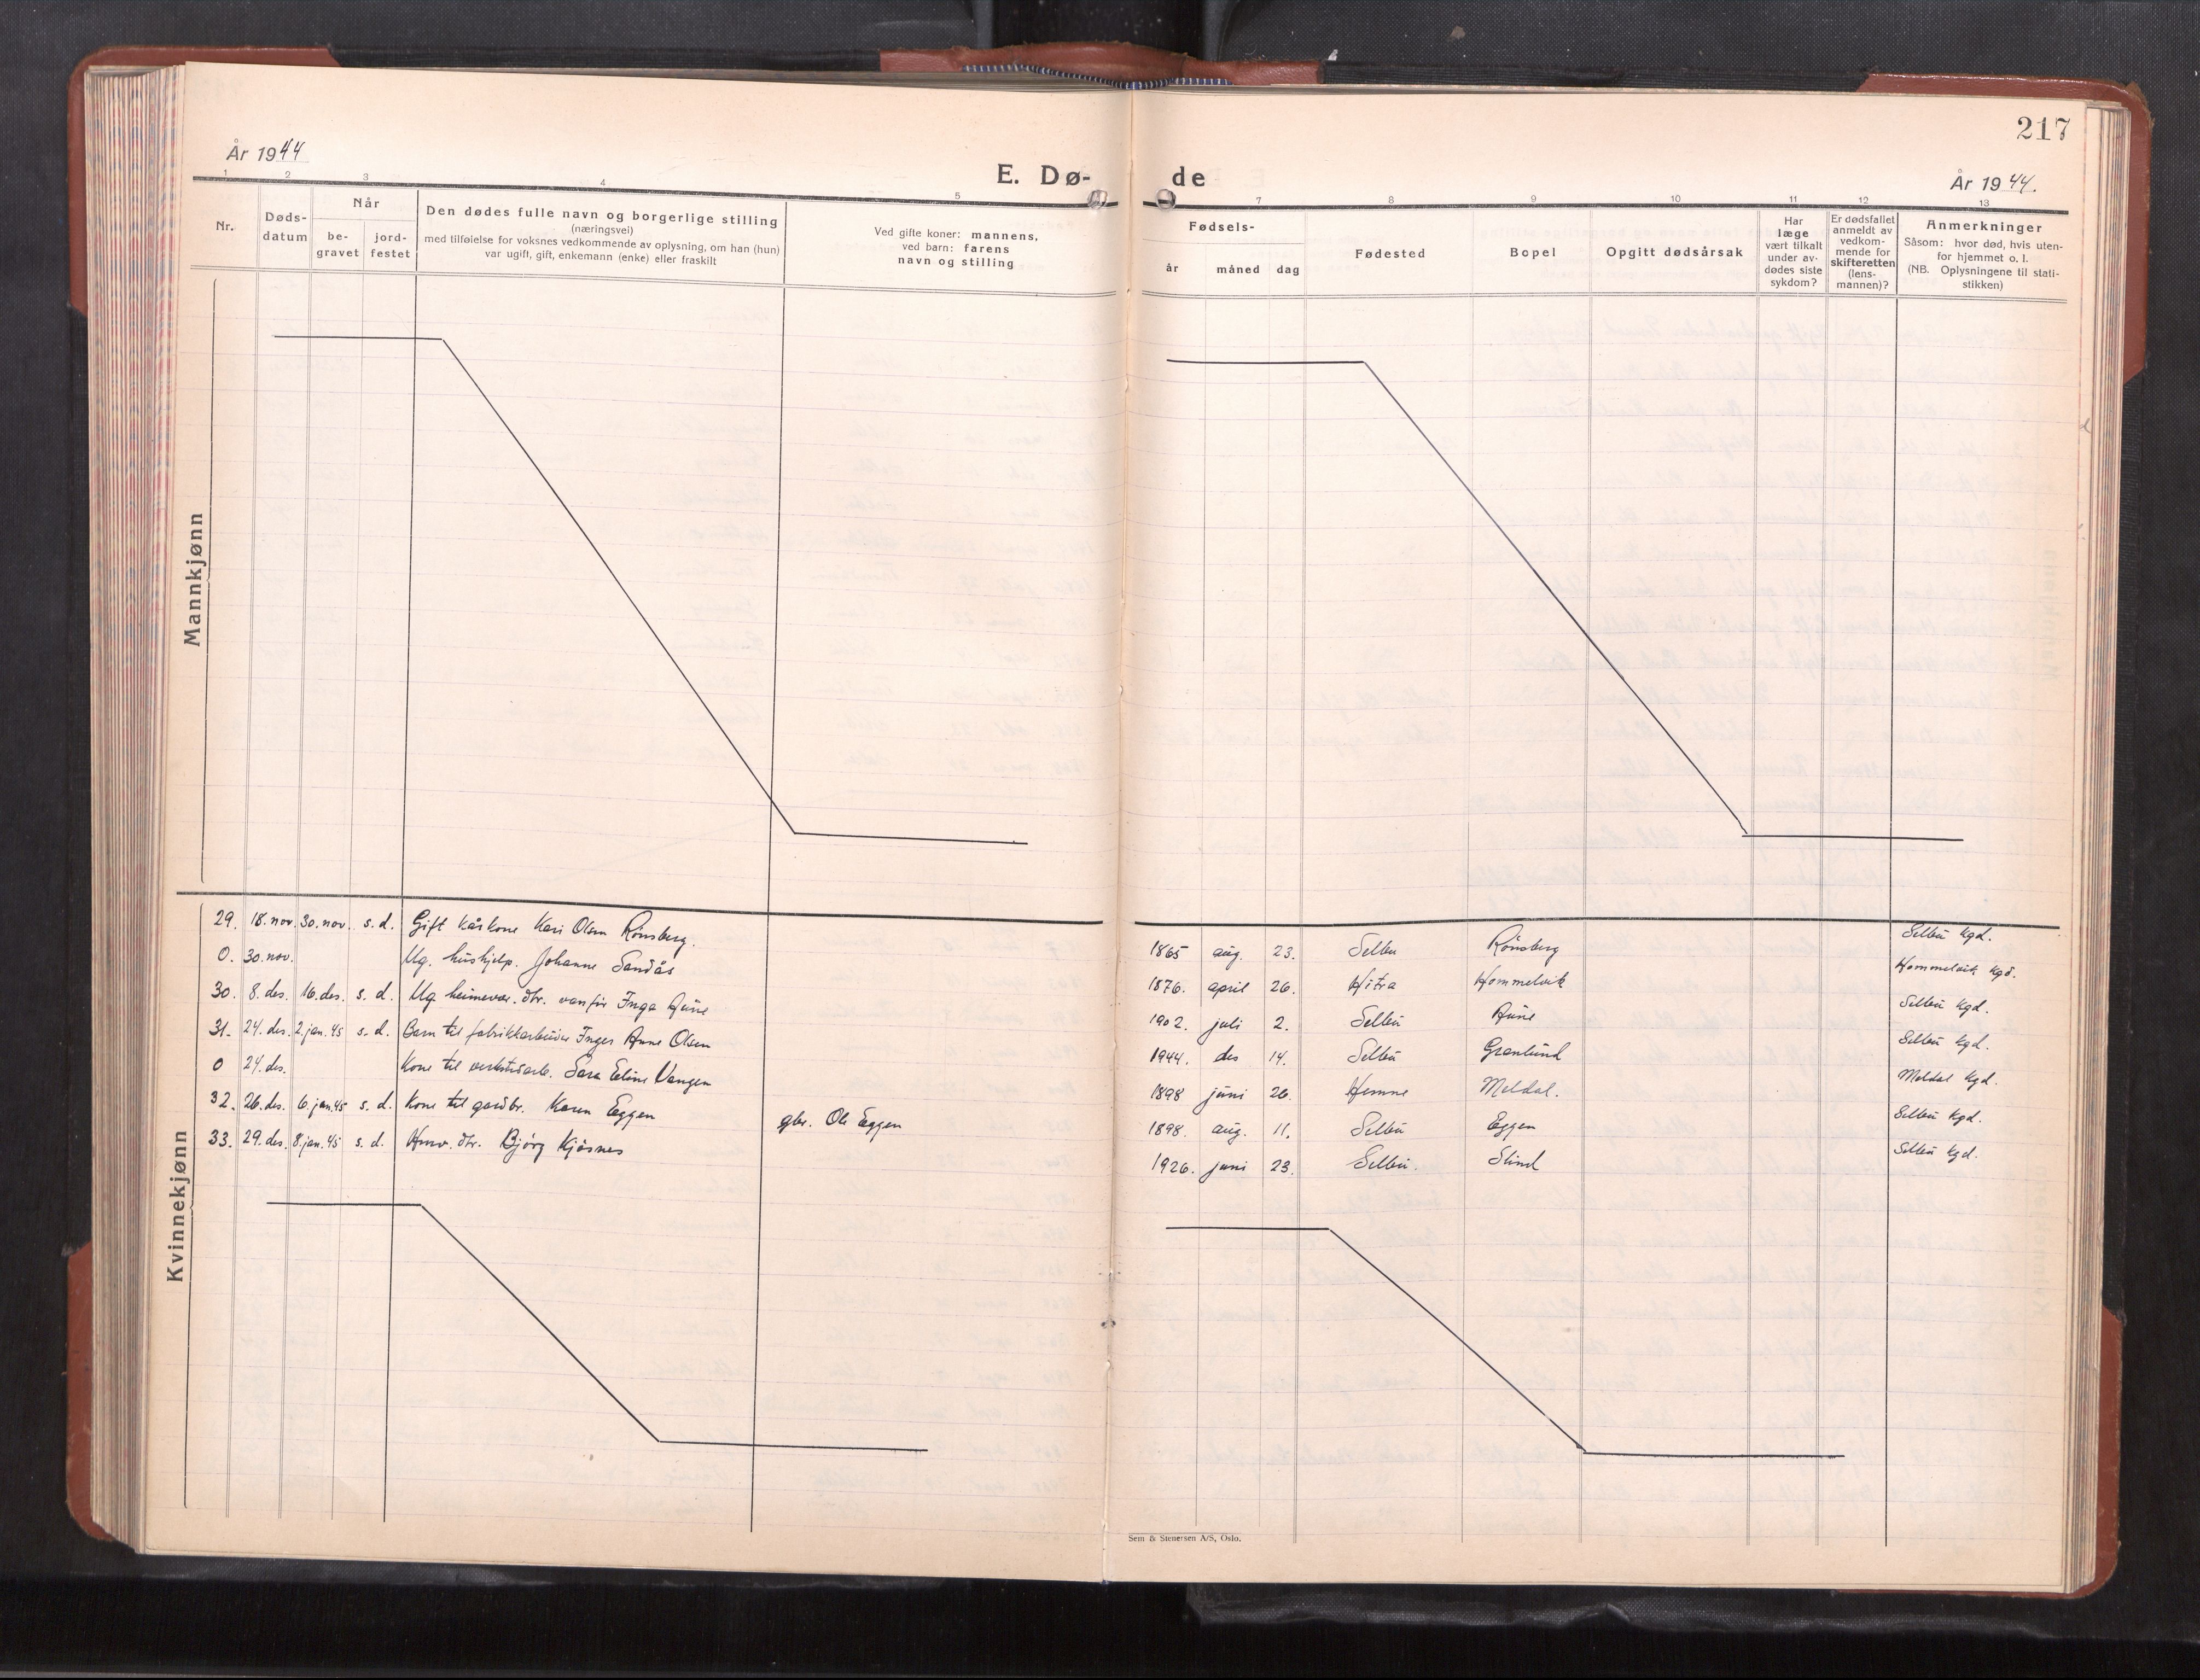 217
År 1944
E. Dø-
de
År 1944.
1 2 3 4 5
7 8 9 10 11 12 13
Nr.
Døds-
datum
Når
be-
gravet
jord-
festet
Den dødes fulle navn og borgerlige stilling
(næringsvei)
med tilføielse for voksnes vedkommende av oplysning, om han (hun)
var ugift, gift, enkemann (enke) eller fraskilt
Ved gifte koner: mannens,
ved barn: farens
navn og stilling
Fødsels-
år
måned
dag
Fødested
Bopel
Opgitt dødsårsak
Har
læge
vært tilkalt
under av-
dødes siste
sykdom?
Er dødsfallet
anmeldt av
vedkom-
mende for
skifteretten
(lens-
mannen)?
Anmerkninger
Såsom: hvor død, hvis uten-
for hjemmet o. l.
(NB. Oplysningene til stati-
stikken)
Mannkjønn
Kvinnekjønn
29. 18. nov. 30. nov. s. d. Gift kårkone Kari Olsen Rønsberg. 1865 aug. 23. Selbu Rønsberg Selbu kgd.
0. 30. nov. Ug. hushjelp. Johanne Sandås 1876. april 26. Hitra Hommelvik Hommelvik kgd.
30. 8. des. 16. des. s. d. Ug. heimevær. dtr. vanfør Inga Aune 1902. juli 2. Selbu Aune Selbu kgd.
31. 24. des. 2. jan. 45 s. d. Barn til fabrikkarbeider Inger Anne Olsen 1944. des 14. Selbu Grønlund Selbu kgd.
0 24. des. Kone til verkstedarb. Sara Eline Vangen 1898 juni 26. Hemne Meldal. Meldal kgd.
32. 26. des. 6. jan. 45 s. d. Kone til gardbr. Karen Eggen gbr. Ole Eggen 1898. aug. 11. Selbu Eggen Selbu kgd.
33. 29. des. 8. jan. 45 s. d. Hmv. dtr. Bjørg Kjøsnes 1926. juni 23. Selbu. Slind Selbu kgd.
Sem & Stenersen A/S, Oslo.